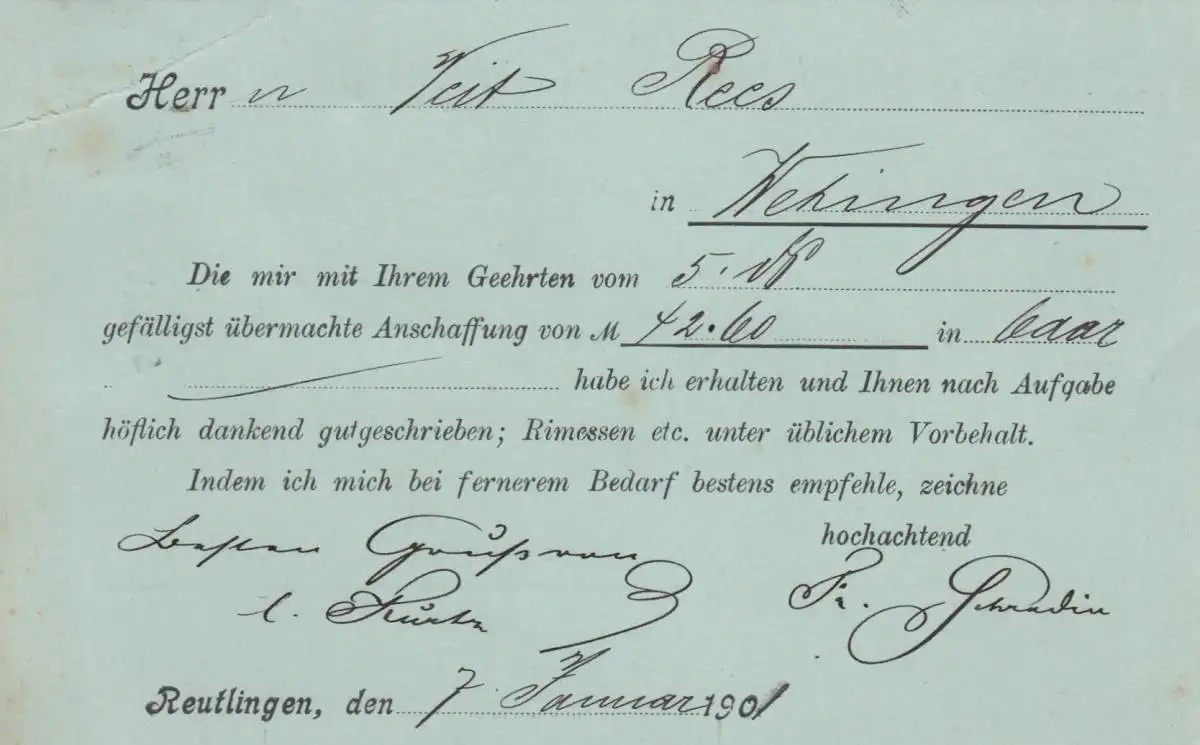 Herrn Veit Rees
in Wehingen
Die mir mit Ihrem Geehrten vom 5.
gefälligst übermachte Anschaffung von M 42.60 in baar
habe ich erhalten und Ihnen nach Aufgabe
höflich dankend gutgeschrieben; Rimessen etc. unter üblichem Vorbehalt.
Indem ich mich bei fernerem Bedarf bestens empfehle, zeichne
hochachtend
Besten Gruß von
Fr. Schradin
Reutlingen, den 7 Januar 1901